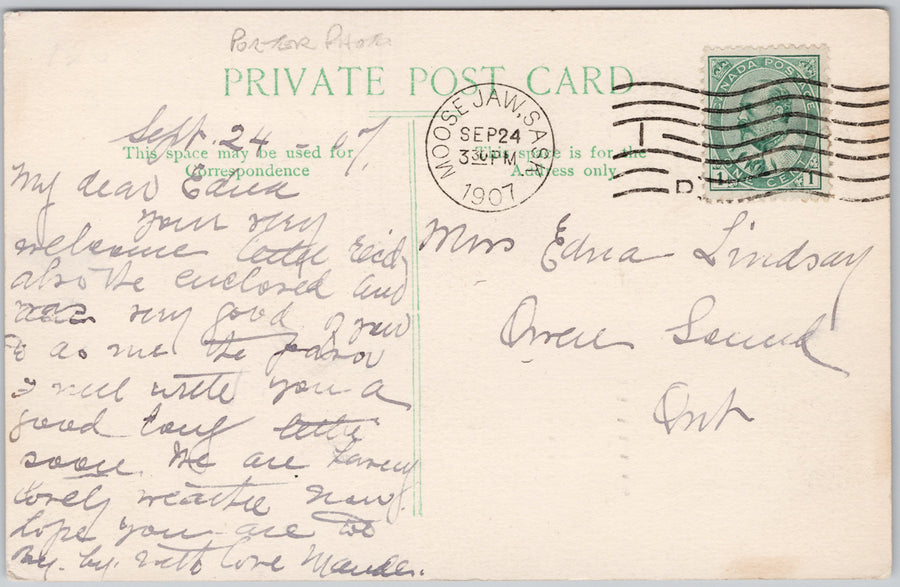 Porter Photo
PRIVATE POST CARD
Sept. 24 - 07.
This space may be used for
Correspondence
This space is for the
Address only
MOOSE JAW, SASK
SEP 24
3 30 PM
1907
CANADA POSTAGE
1 ONE CENT 1
My dear Edna
your very
welcome letter Rec'd
also the enclosed and
was very good of you
to do me the favor
I will write you a
good long letter
soon. We are having
lovely weather now
hope you are
By. by. with love Maude.
Miss Edna Lindsay
Owen Sound
Ont